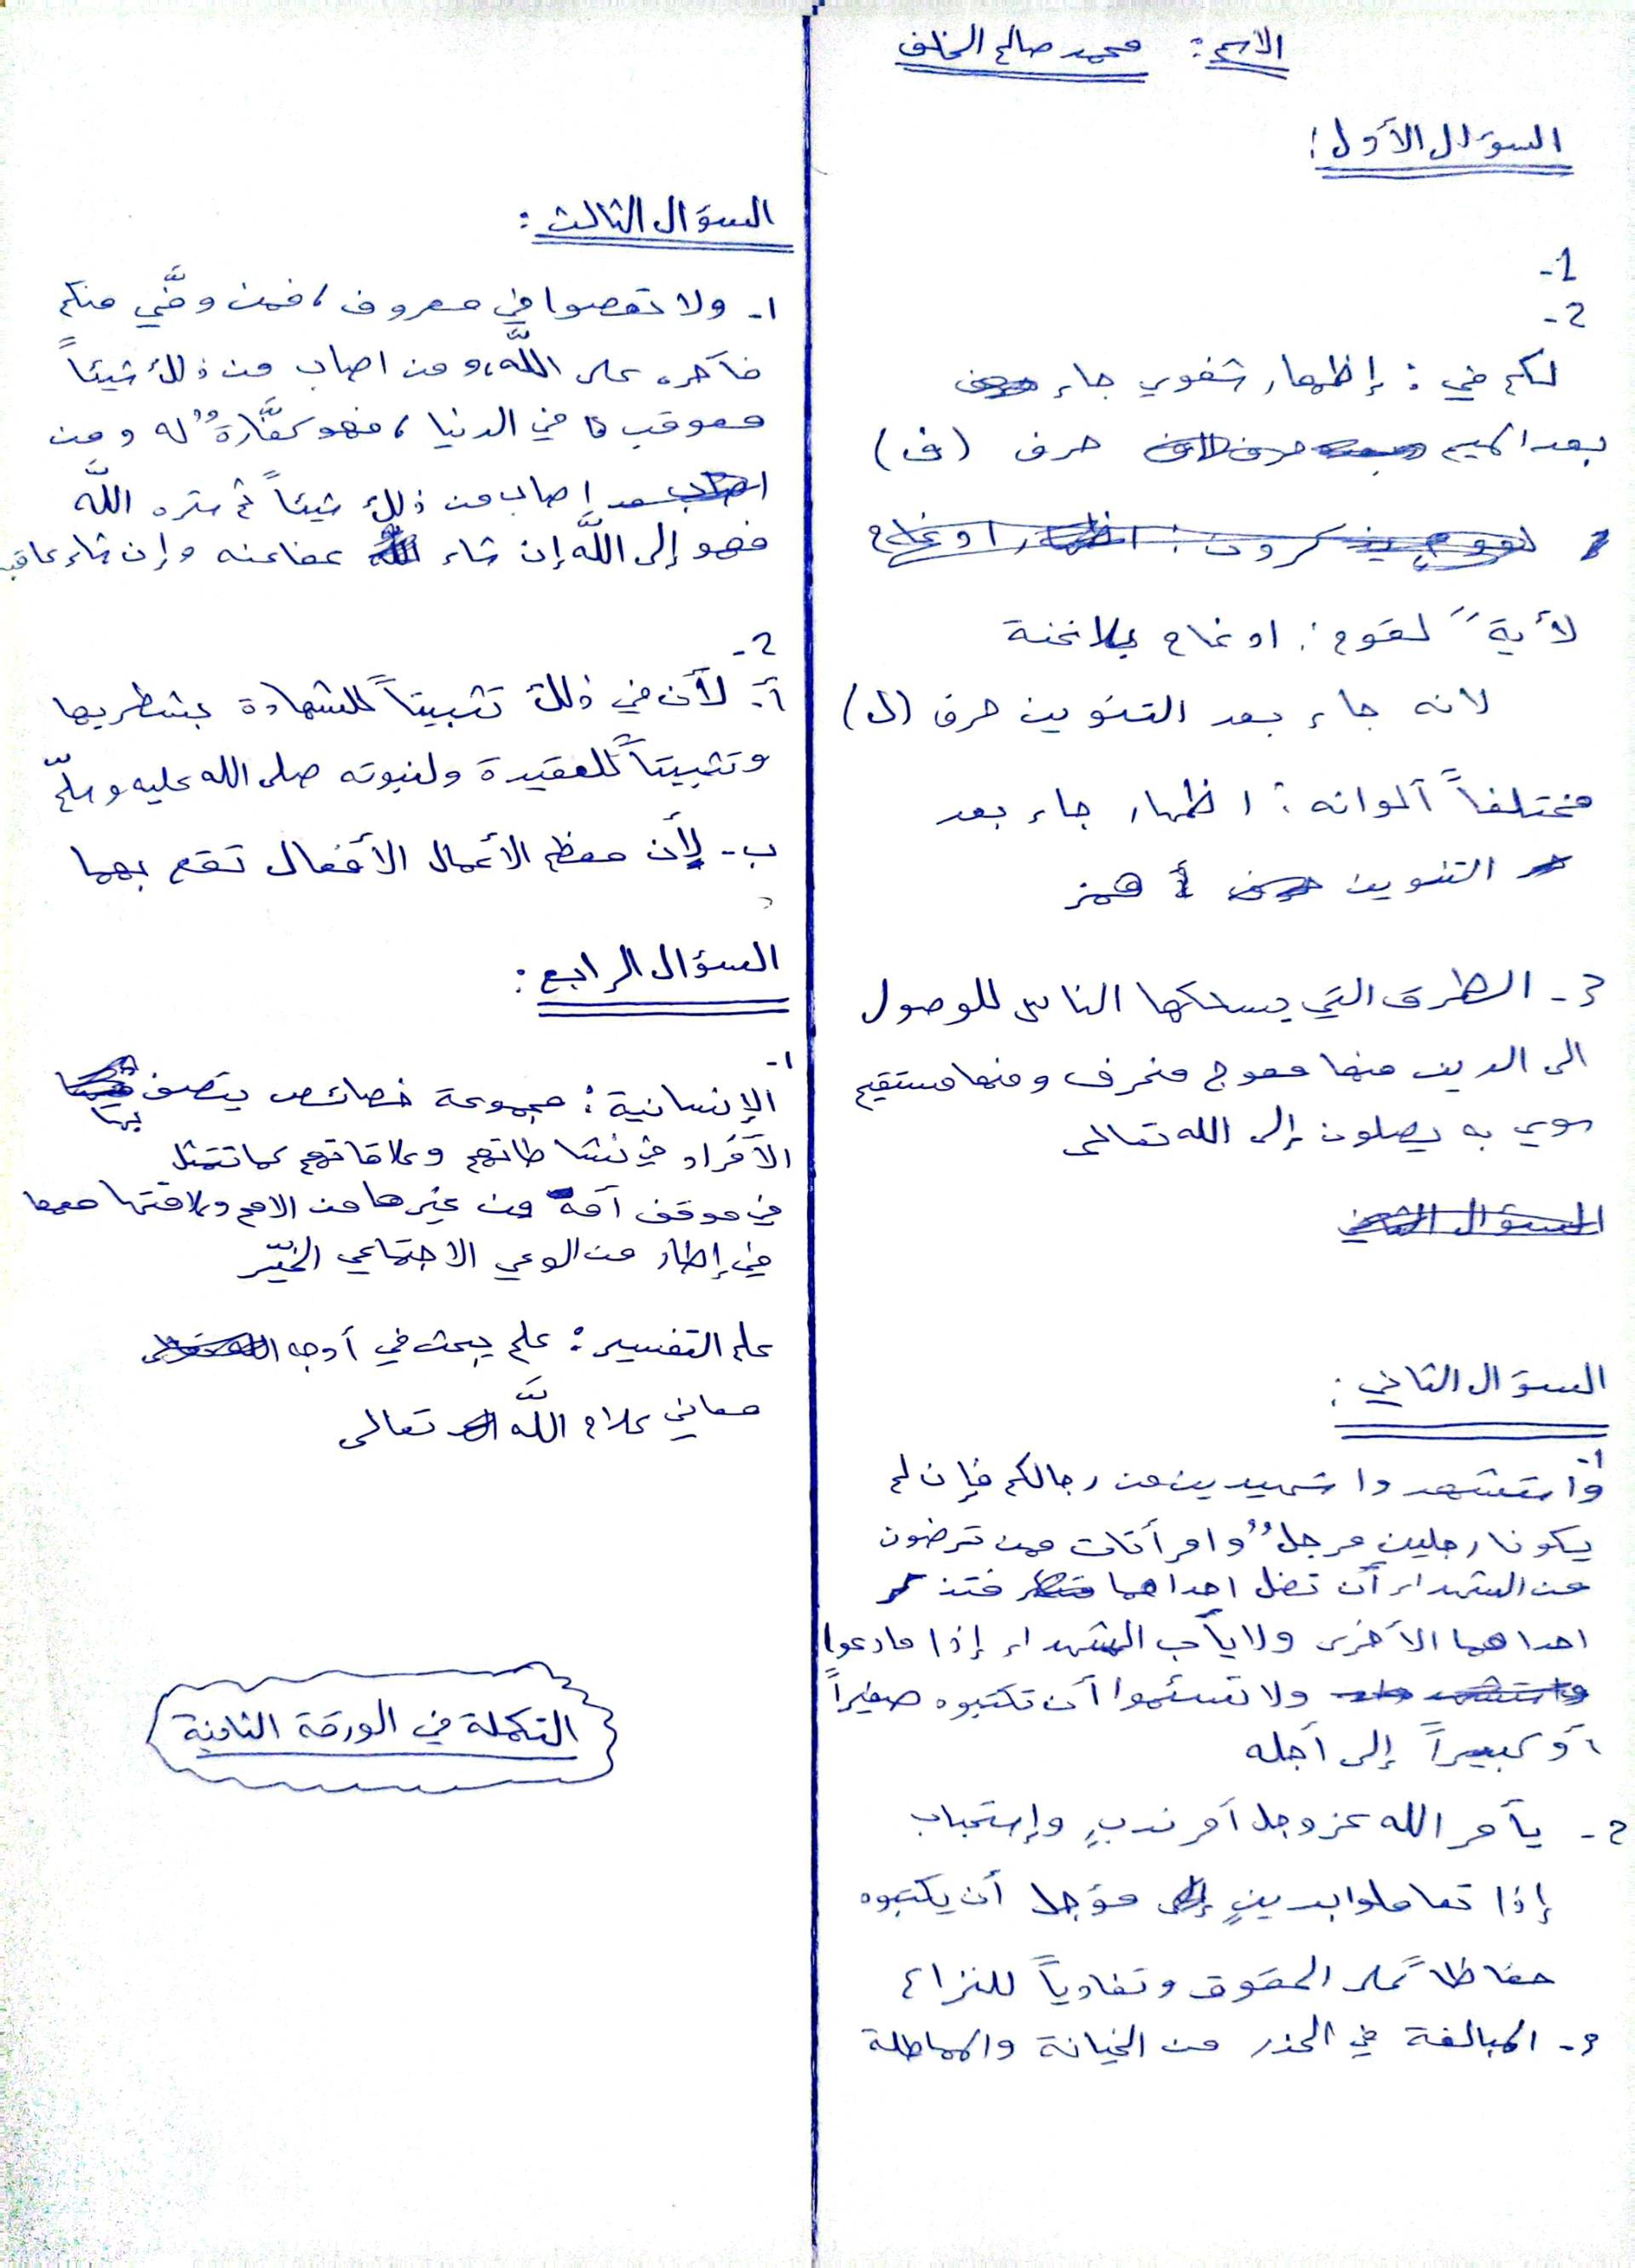 الاسم: محمد صالح الخلف
السؤال الأول:
1-
2-
لكم في: إظهار شفوي جاء
بعد الميم حرف (ف)
لأيةً لقوم: ادغام بلا غنة
لانه جاء بعد التنوين حرف (ل)
مختلفاً ألوانه: اظهار جاء بعد
التنوين أ همز
3- الطرق التي يسلكها الناس للوصول
الى الدين منها معوج منحرف ومنها مستقيم
سوي به يصلون إلى الله تعالى
السؤال الثاني:
1-
وأستشهدوا شهيدين من رجالكم فإن لم
يكونا رجلين فرجلٌ وامرأتان ممن ترضون
من الشهداء أن تضل احداهما فتذكر
احداهما الأخرى ولا يأب الشهداء إذا ما دعوا
ولا تسئموا أن تكتبوه صغيراً
أو كبيراً إلى أجله
2- يأمر الله عز وجل أمر ندبٍ وإستحباب
إذا تعاملوا بدينٍ مؤجل أن يكتبوه
حفاظاً على الحقوق وتفادياً للنزاع
3- المبالغة في الحذر من الخيانة والمماطلة
السؤال الثالث:
1- ولا تعصوا في معروف، فمن وفَّي منكم
فأجره على اللَّه، ومن اصاب من ذلك شيئاً
فعوقب في الدنيا، فهو كفَّارةٌ له ومن
اصاب من ذلك شيئاً ثم ستره اللَّه
فهو إلى اللَّه إن شاء عفا عنه وإن شاء عاقبه
2-
أ- لأن في ذلك تثبيتاً للشهادة بشطريها
وتثبيتاً للعقيدة ولنبوته صلى الله عليه وسلّم
ب- لأن معظم الأعمال الأفعال تقع بهما
السؤال الرابع:
1-
الإنسانية: مجموعة خصائص يتصف بها
الأفراد في نشاطاتهم وعلاقاتهم كما تتمثل
في موقف أمة من غيرها من الامم وعلاقتها معها
في إطار من الوعي الاجتماعي الخيّر
علم التفسير: علم يبحث في أوجه
معاني كلام اللَّه تعالى
التكملة في الورقة الثانية